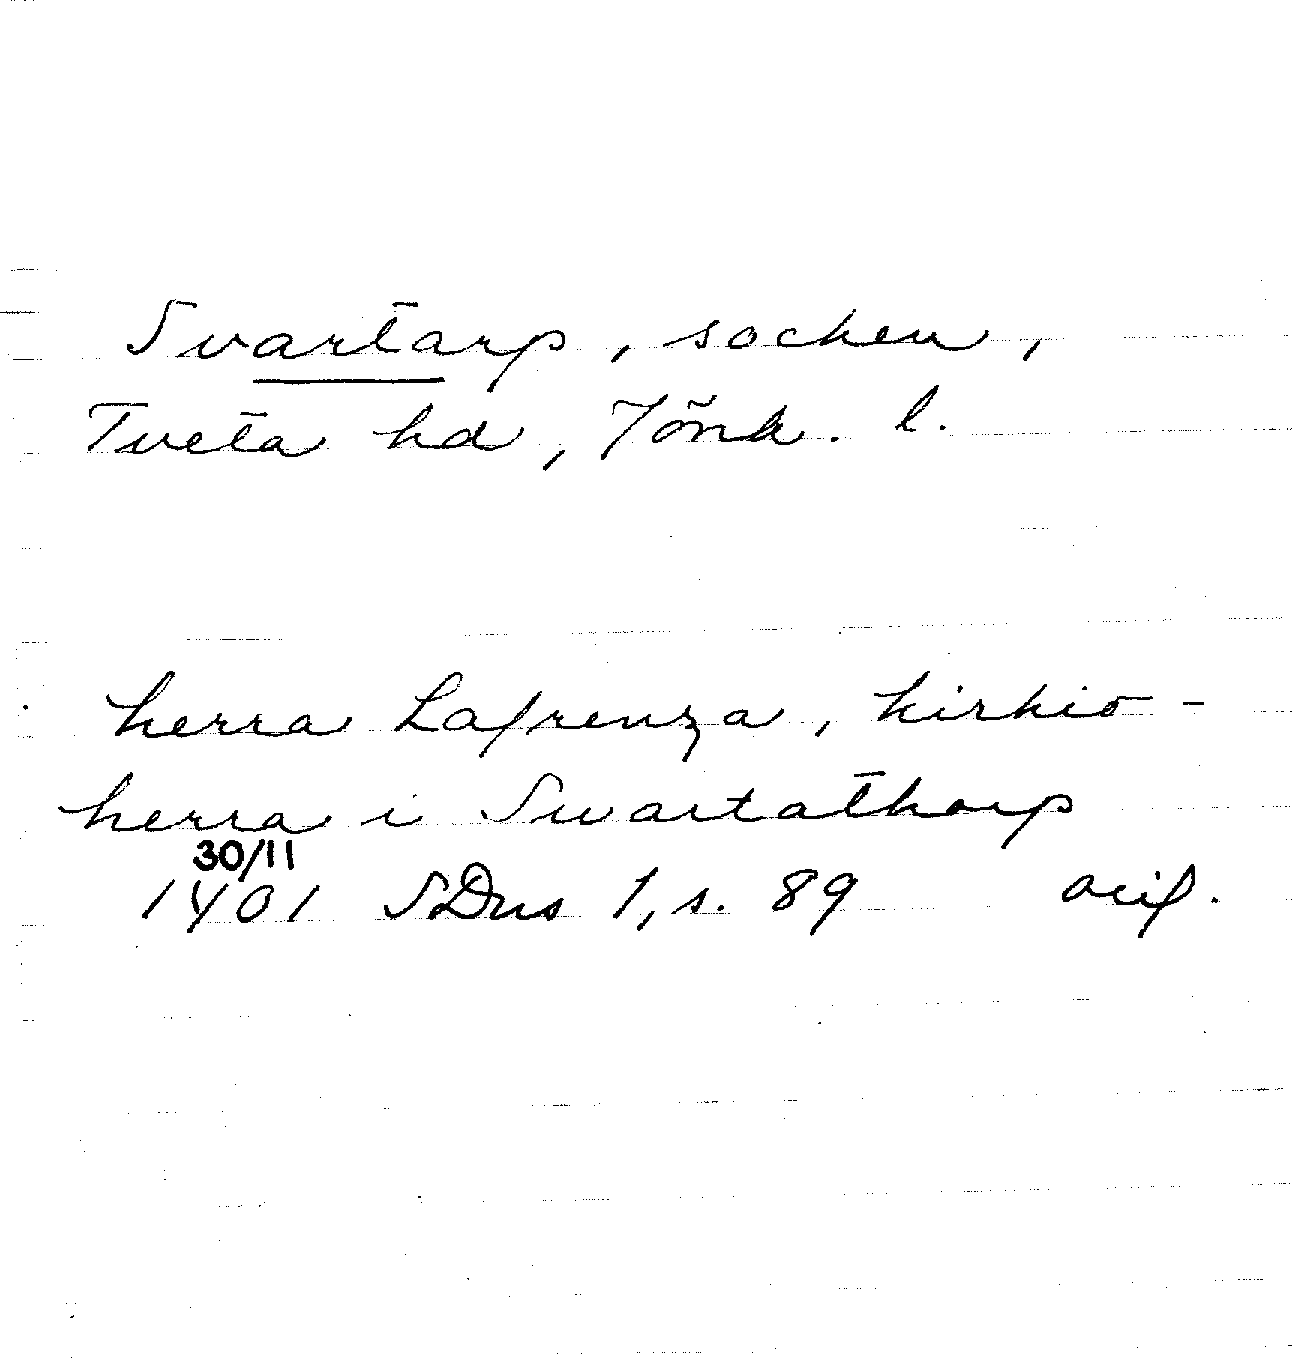 Svartarp, socken,
Tveta hd, Jönk. l.
herra Lafrenza, kirkio-
herra i Swartathorp
30/11
1401 SDns 1, s. 89 orig.